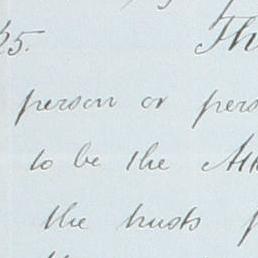 25. Th
person or pers
to be the
the trusts